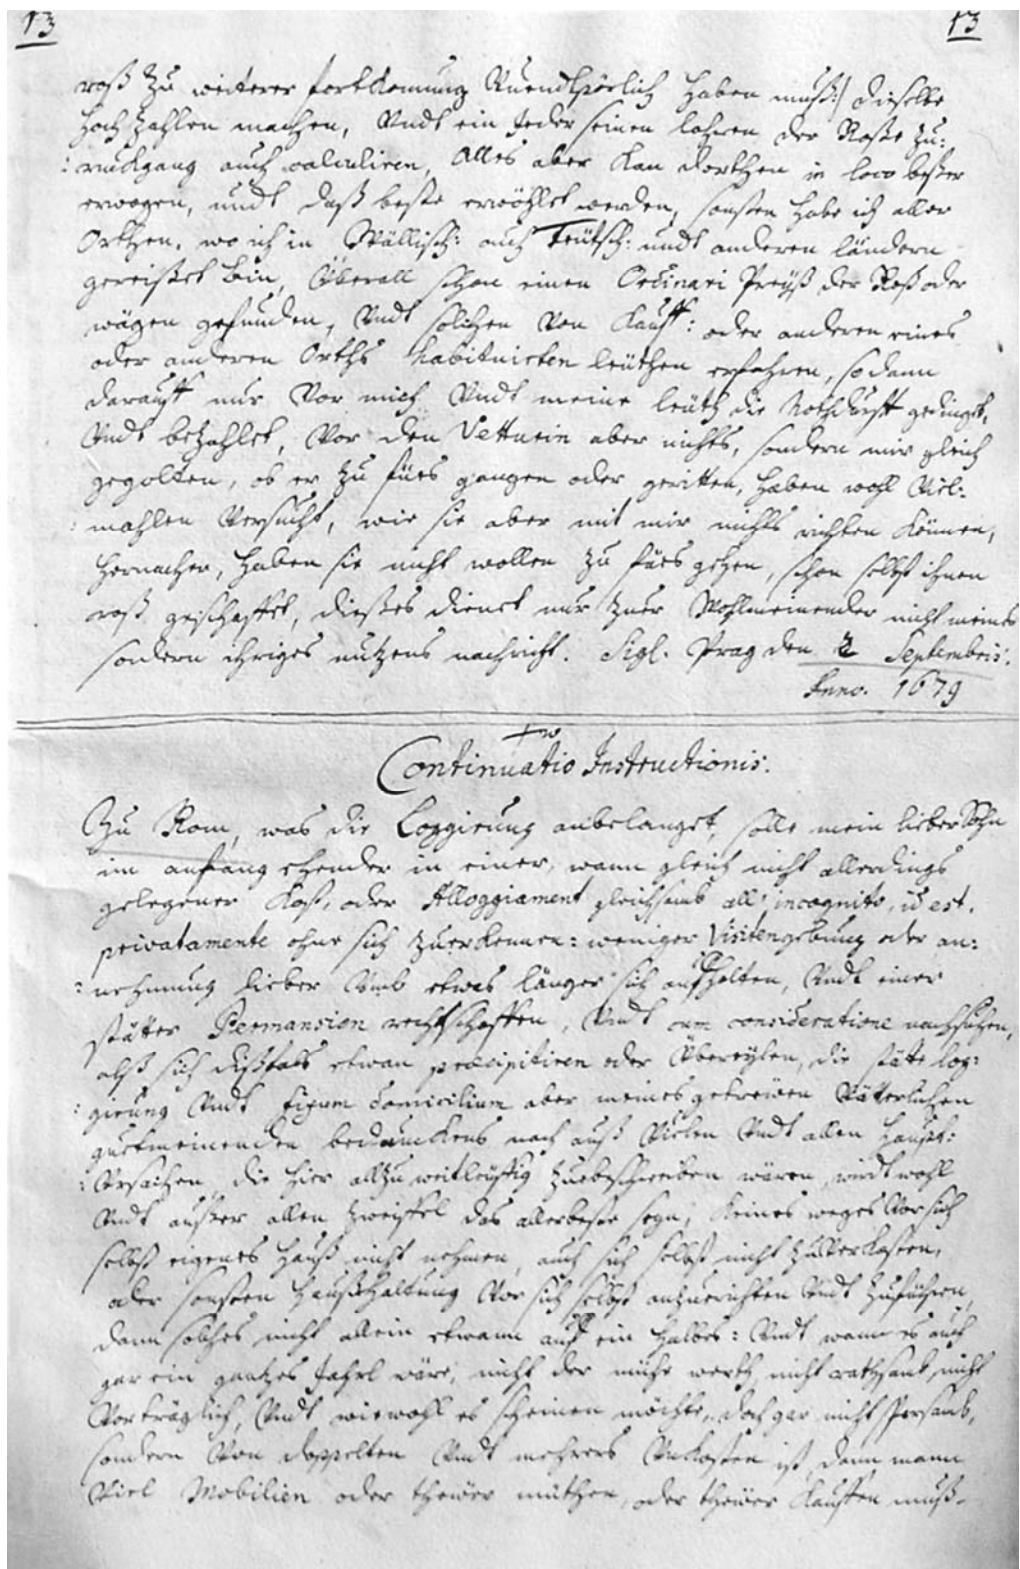 13 13
roß zu weiterer fortkomung Unendtpörlich haben muß:/ dieselbe
hoch zahlen machen, Undt ein Jeder seinen lohren der Roße zu:
:ruckgang auch calculiren, Alles aber kan dorthen in loco beßer
erwogen, undt daß beste erwöhlet werden, sonsten habe ich aller
Orthen, wo ich in Wällisch: auch Teütsch: undt anderen ländern
gereißet bin, Überall schon einen Ordinari Preyß der Roß oder
wägen gefunden, Undt solchen Von Kauff: oder anderen eines
oder anderen Orths habituirten leüthen erfahren, so dann
darauff nur Vor mich Undt meine leüth die Nothdurfft gedingt,
Undt bezahlet, Vor den Vetturin aber nichts, sondern mir gleich
gegolten, ob er zu fües gangen oder geritten, haben wohl Viel:
:mahlen Versucht, wie sie aber mit mir nichts richten können,
hernacher, haben sie nicht wollen zu fües gehen, schon selbst ihnen
roß geschaffet, dießes dienet nur zuer Wohlmeinender nicht meines
sondern ihriges nutzens nachricht. Sigl. Prag den 2 Septembris:
Anno. 1679
Continuatio Instructionis:
Zu Rom, was die Loggierung anbelanget, solle mein lieber Sohn
im anfang ehender in einer, wann gleich nicht allerdings
gelegener Kost, oder Alloggiament gleichsamb all' incognito, id est,
privatamente ohne sich zuerkennen: weniger Visitengebung oder an:
:nehmung lieber Umb etwas länger sich auffhalten, Undt einer
stäter Permansion rechtschaffen, Undt cum consideratione nachsehen,
alß sich dißfals etwan praecipitiren oder Übereylen, die stäte log:
:gierung Undt fixum domicilium aber meines getreüen Vätterlichen
guetmeinenden bedunckens nach auß Vielen Undt allen Haupt:
:Ursachen, die hier allzu weitleüffig zuebeschreiben wären, wirdt wohl
Undt außer allen zweiffel das allerbeste seyn, keines weges Vor sich
selbst eigenes Hauß nicht nehmen, auch sich selbst nicht zuVerkosten,
oder sonsten Haußhaltung Vor sich selbst anzurichten Undt zuführen,
dann solches nicht allein etwann auff ein halbes: Undt wann es auch
gar ein gantzes Jahrl wäre, nicht der mühe werth, nicht rathsamb, nicht
Vorträglich, Undt wiewohl es scheinen möchte, doch gar nicht sparsamb,
sondern Von doppelten Undt mehrers Unkosten ist, dann mann
Viel Mobilien oder theüer müthen, oder theüer kauffen muß.